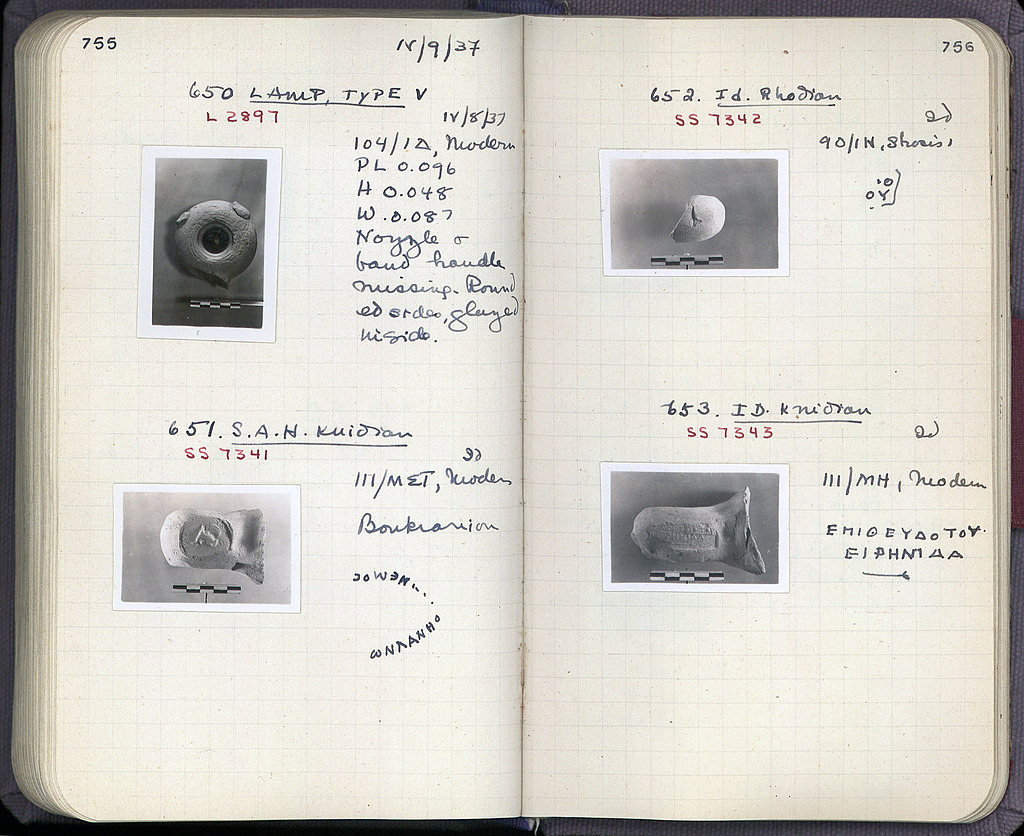 755
IV/9/37
650 LAMP, TYPE V
L 2897
IV/8/37
104/1Δ, Modern
PL 0.096
H 0.048
W. 0.087
Nozzle &
band handle
missing. Round
ed sides, glazed
inside.
651. S.A.H. Knidian
SS 7341
Id
111/MET, Modern
Boukranion
756
652. Id. Rhodian
SS 7342
Id
90/IN,
ΟΥ
653. ID. Knidian
SS 7343
Id
111/MH, Modern
ΕΠΙΘΕΥΔΟΤΟΥ
ΕΙΡΗΝΙΔΑ